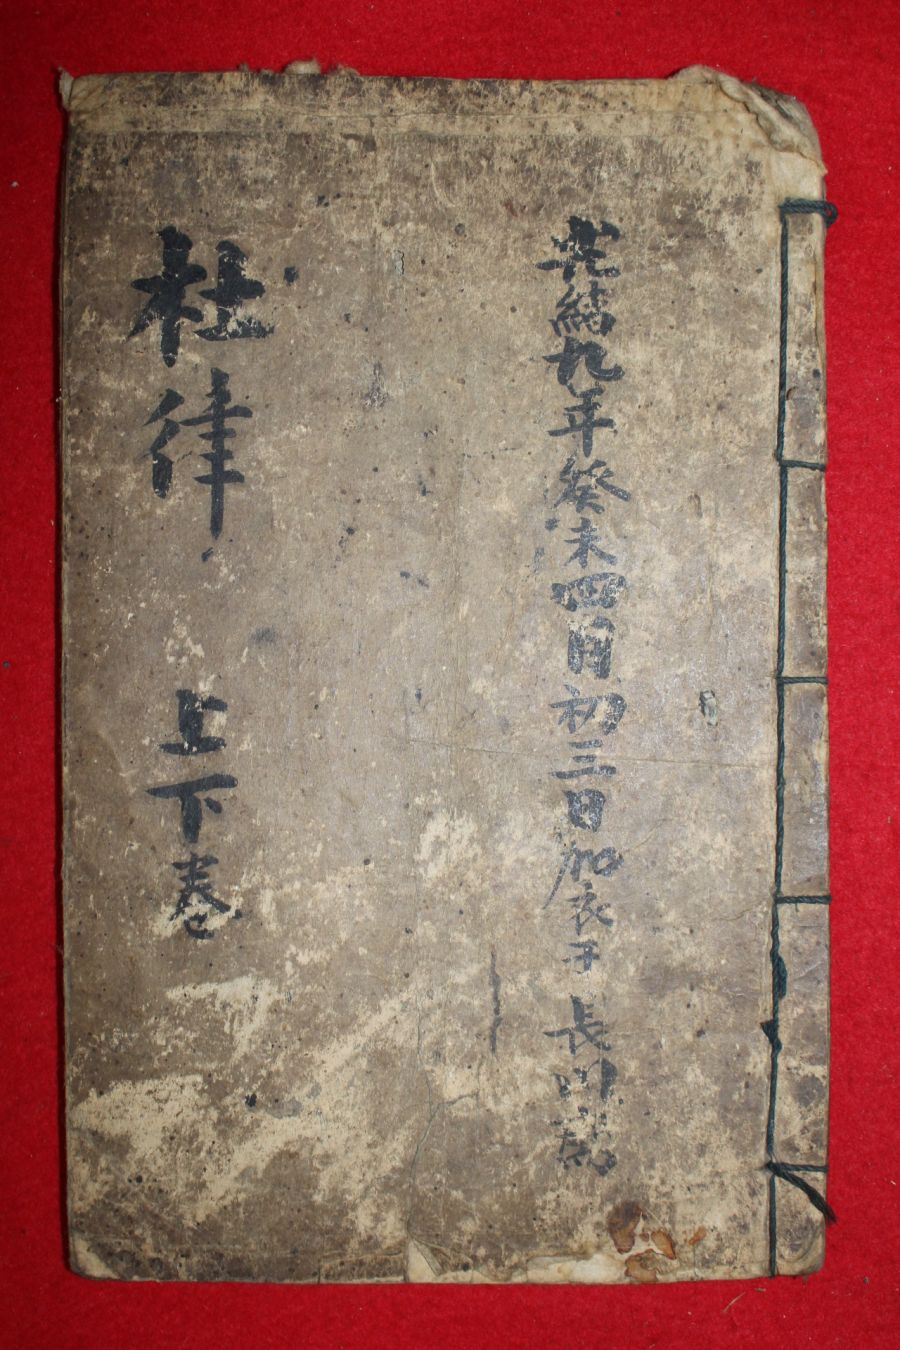 光緖九年癸未四月初三日加衣于長川
杜律 上下卷